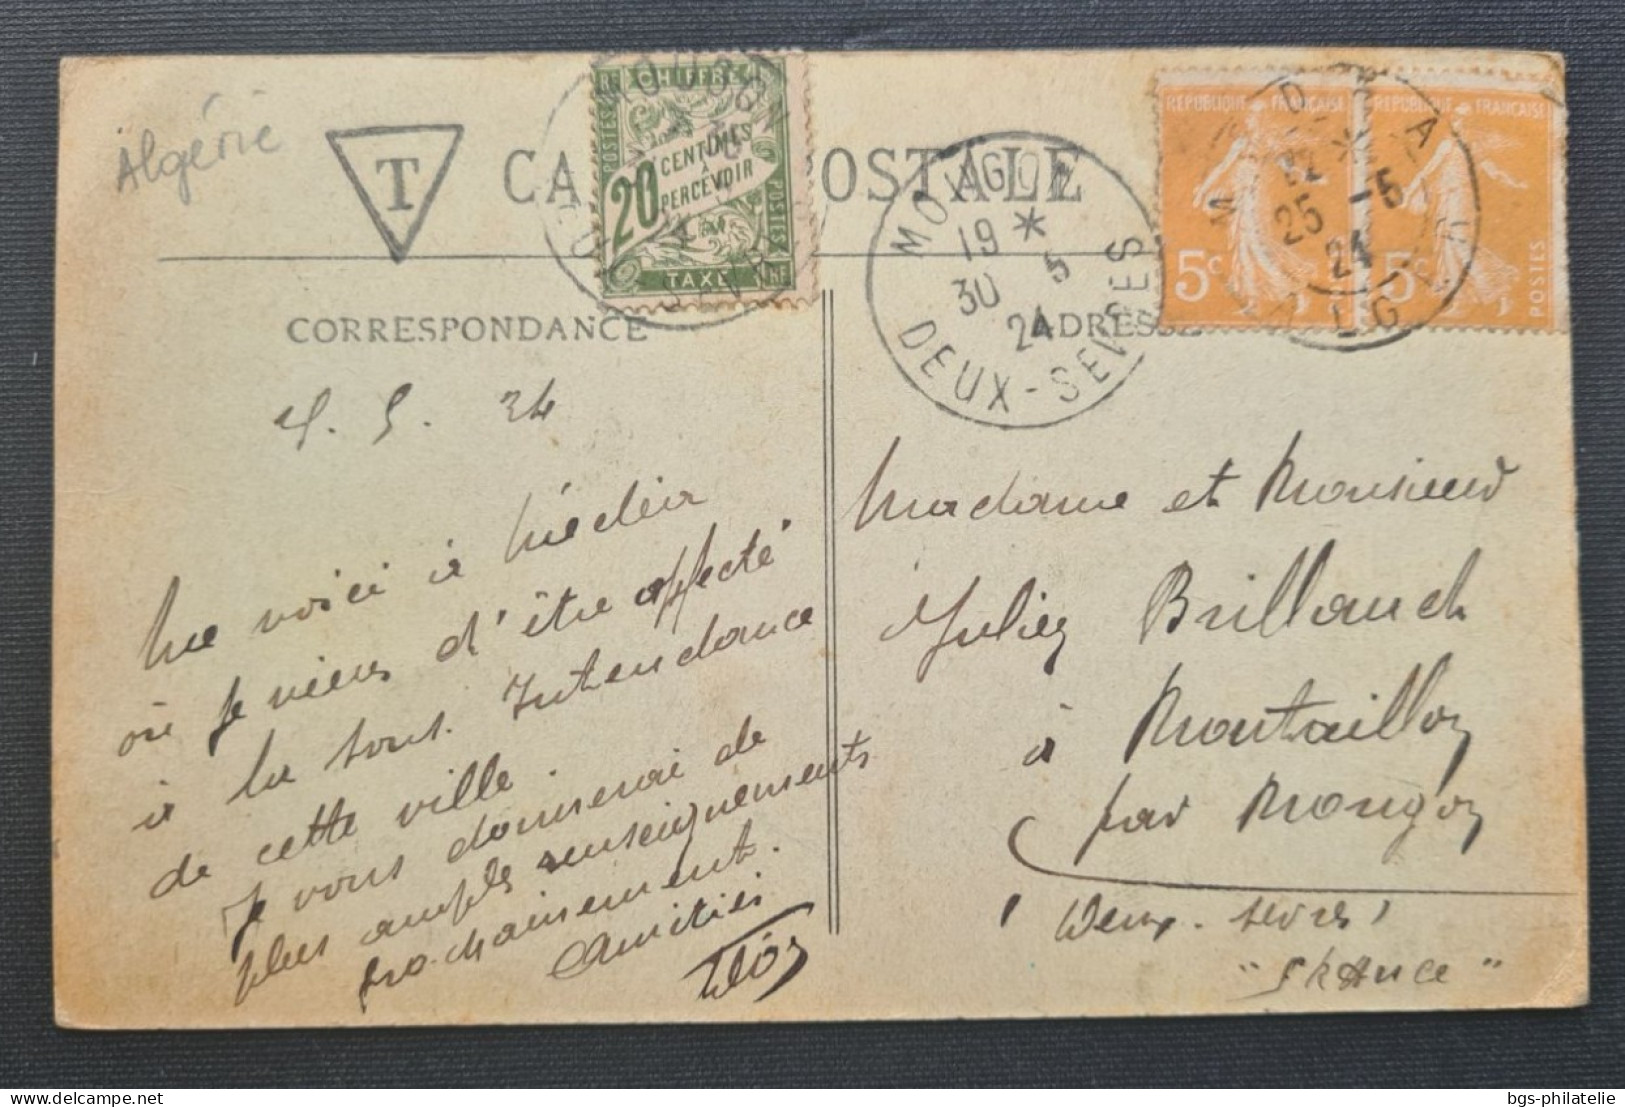 Algérie
T
CARTE POSTALE
CHIFFRE
POSTES
20
CENTIMES
À
PERCEVOIR
TAXE
RF
MOUGON
19 *
30 5
24
DEUX-SEVRES
REPUBLIQUE FRANÇAISE
5c
REPUBLIQUE FRANÇAISE
5c
POSTES
12 *
25 -5
24
ALGER
CORRESPONDANCE
ADRESSE
5. 24
Me voici à Médéa
où je viens d'être affecté
à la sous. Intendance
de cette ville.
Je vous donnerai de
plus amples renseignements
prochainement.
Amitiés
Madame et Monsieur
Julien Brillauch
à Montaillon
par Mougon
(Deux-Sèvres)
"France"
bgs-philatelie